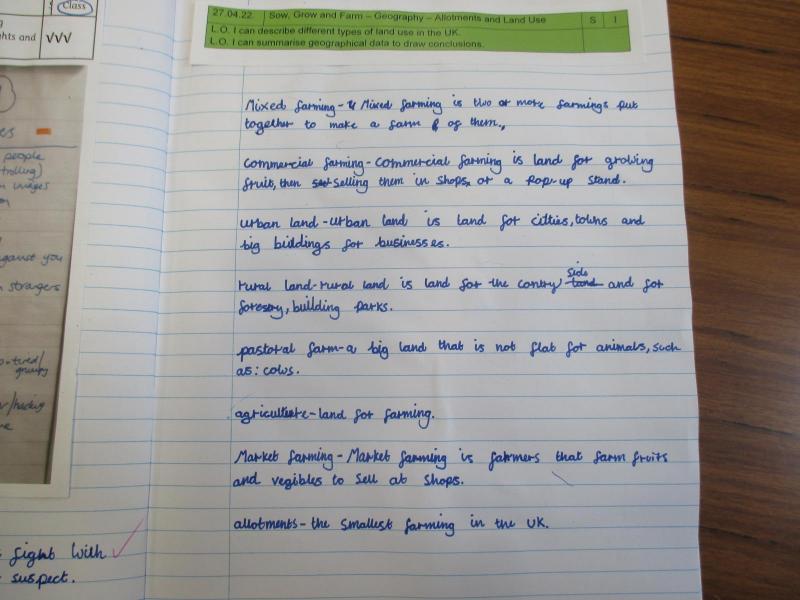 Class
g
ghts and
√√√
27.04.22. Sow, Grow and Farm – Geography – Allotments and Land Use S I
L.O. I can describe different types of land use in the UK.
L.O. I can summarise geographical data to draw conclusions.
es
people
trolling)
images
on
against you
strangers
o-tired/
grumpy
/hacking
Mixed farming- Mixed farming is two or more farmings put
together to make a farm of them.,
commercial farming-commercial farming is land for growing
fruit, then selling them in shops, or a pop-up stand.
urban land-urban land is land for citties, towns and
big buildings for businesses.
rural land-rural land is land for the contry side land and for
forestry, building parks.
pastoral farm-a big land that is not flat for animals, such
as: cows.
agriculture-land for farming.
Market farming- Market farming is farmers that farm fruits
and vegibles to sell at shops.
allotments-the smallest farming in the UK.
fight with
suspect.